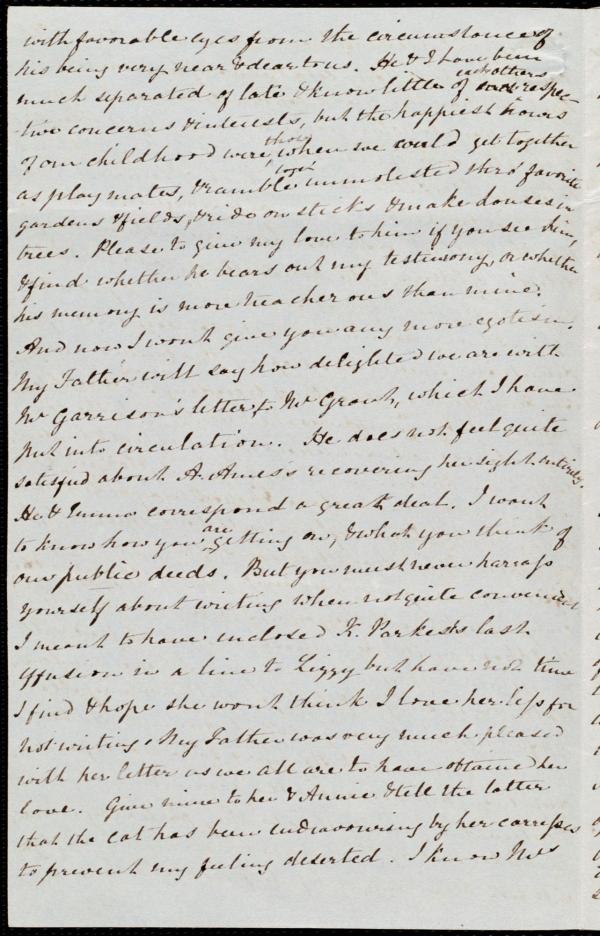 with favorable eyes from the circumstance of
his being very near & dear to us. He & I have been
much separated of late & know little of each others respec-
-tive concerns & interests, but the happiest hours
of our childhood were those when we could get together
as playmates, & ramble unmolested thro' favorite
gardens & fields, & ride on sticks & make houses in
trees. Please to give my love to him if you see him,
& find whether he bears out my testimony, or whether
his memory is more treacherous than mine.
And now I wont give you any more egotism.
My Father will say how delighted we are with
Mr Garrison's letter to Mr Grant, which I have
put into circulation. He does not feel quite
satisfied about A. Ames's recovering her sight entirely.
He & Emma correspond a great deal. I want
to know how you are getting on, & what you think of
our public deeds. But you must never harrass
yourself about writing when not quite convenient
I meant to have inclosed K. Parkes's last
effusion in a line to Lizzy but have not time
I find & hope she wont think I love her less for
not writing. My Father was very much pleased
with her letter as we all are to have obtained her
love. Give mine to her & Annie & tell the latter
that the cat has been endeavouring by her caresses
to prevent my feeling deserted. I know Mrs